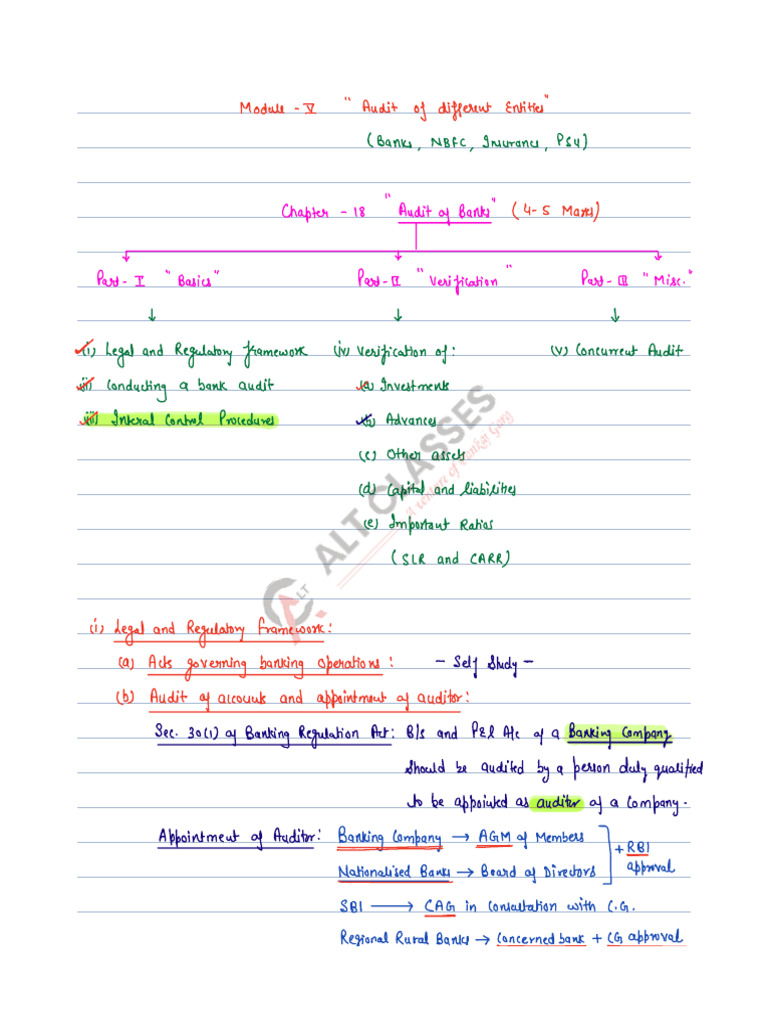 Module - V "Audit of different Entities"
(Banks, NBFC, Insurance, PSU)
Chapter - 18 "Audit of Banks" (4-5 Marks)
Part - I "Basics" Part - II "Verification" Part - III "Misc."
(i) Legal and Regulatory framework (iv) Verification of: (v) Concurrent Audit
(ii) Conducting a bank audit (a) Investments
(iii) Interal Control Procedures (b) Advances
(c) Other assets
(d) Capital and liabilities
(e) Important Ratios
(SLR and CARR)
ALT CLASSES
A venture of Pankaj Garg
LT
(i) Legal and Regulatory framework:
(a) Acts governing banking operations: - Self Study -
(b) Audit of accounts and appointment of auditor:
Sec. 30(1) of Banking Regulation Act: B/s and P&L A/c of a Banking Company
should be audited by a person duly qualified
to be appointed as auditor of a company.
Appointment of Auditor: Banking Company → AGM of Members
+ RBI approval
Nationalised Banks → Board of Directors
SBI → CAG in consultation with C.G.
Regional Rural Banks → Concerned bank + CG approval